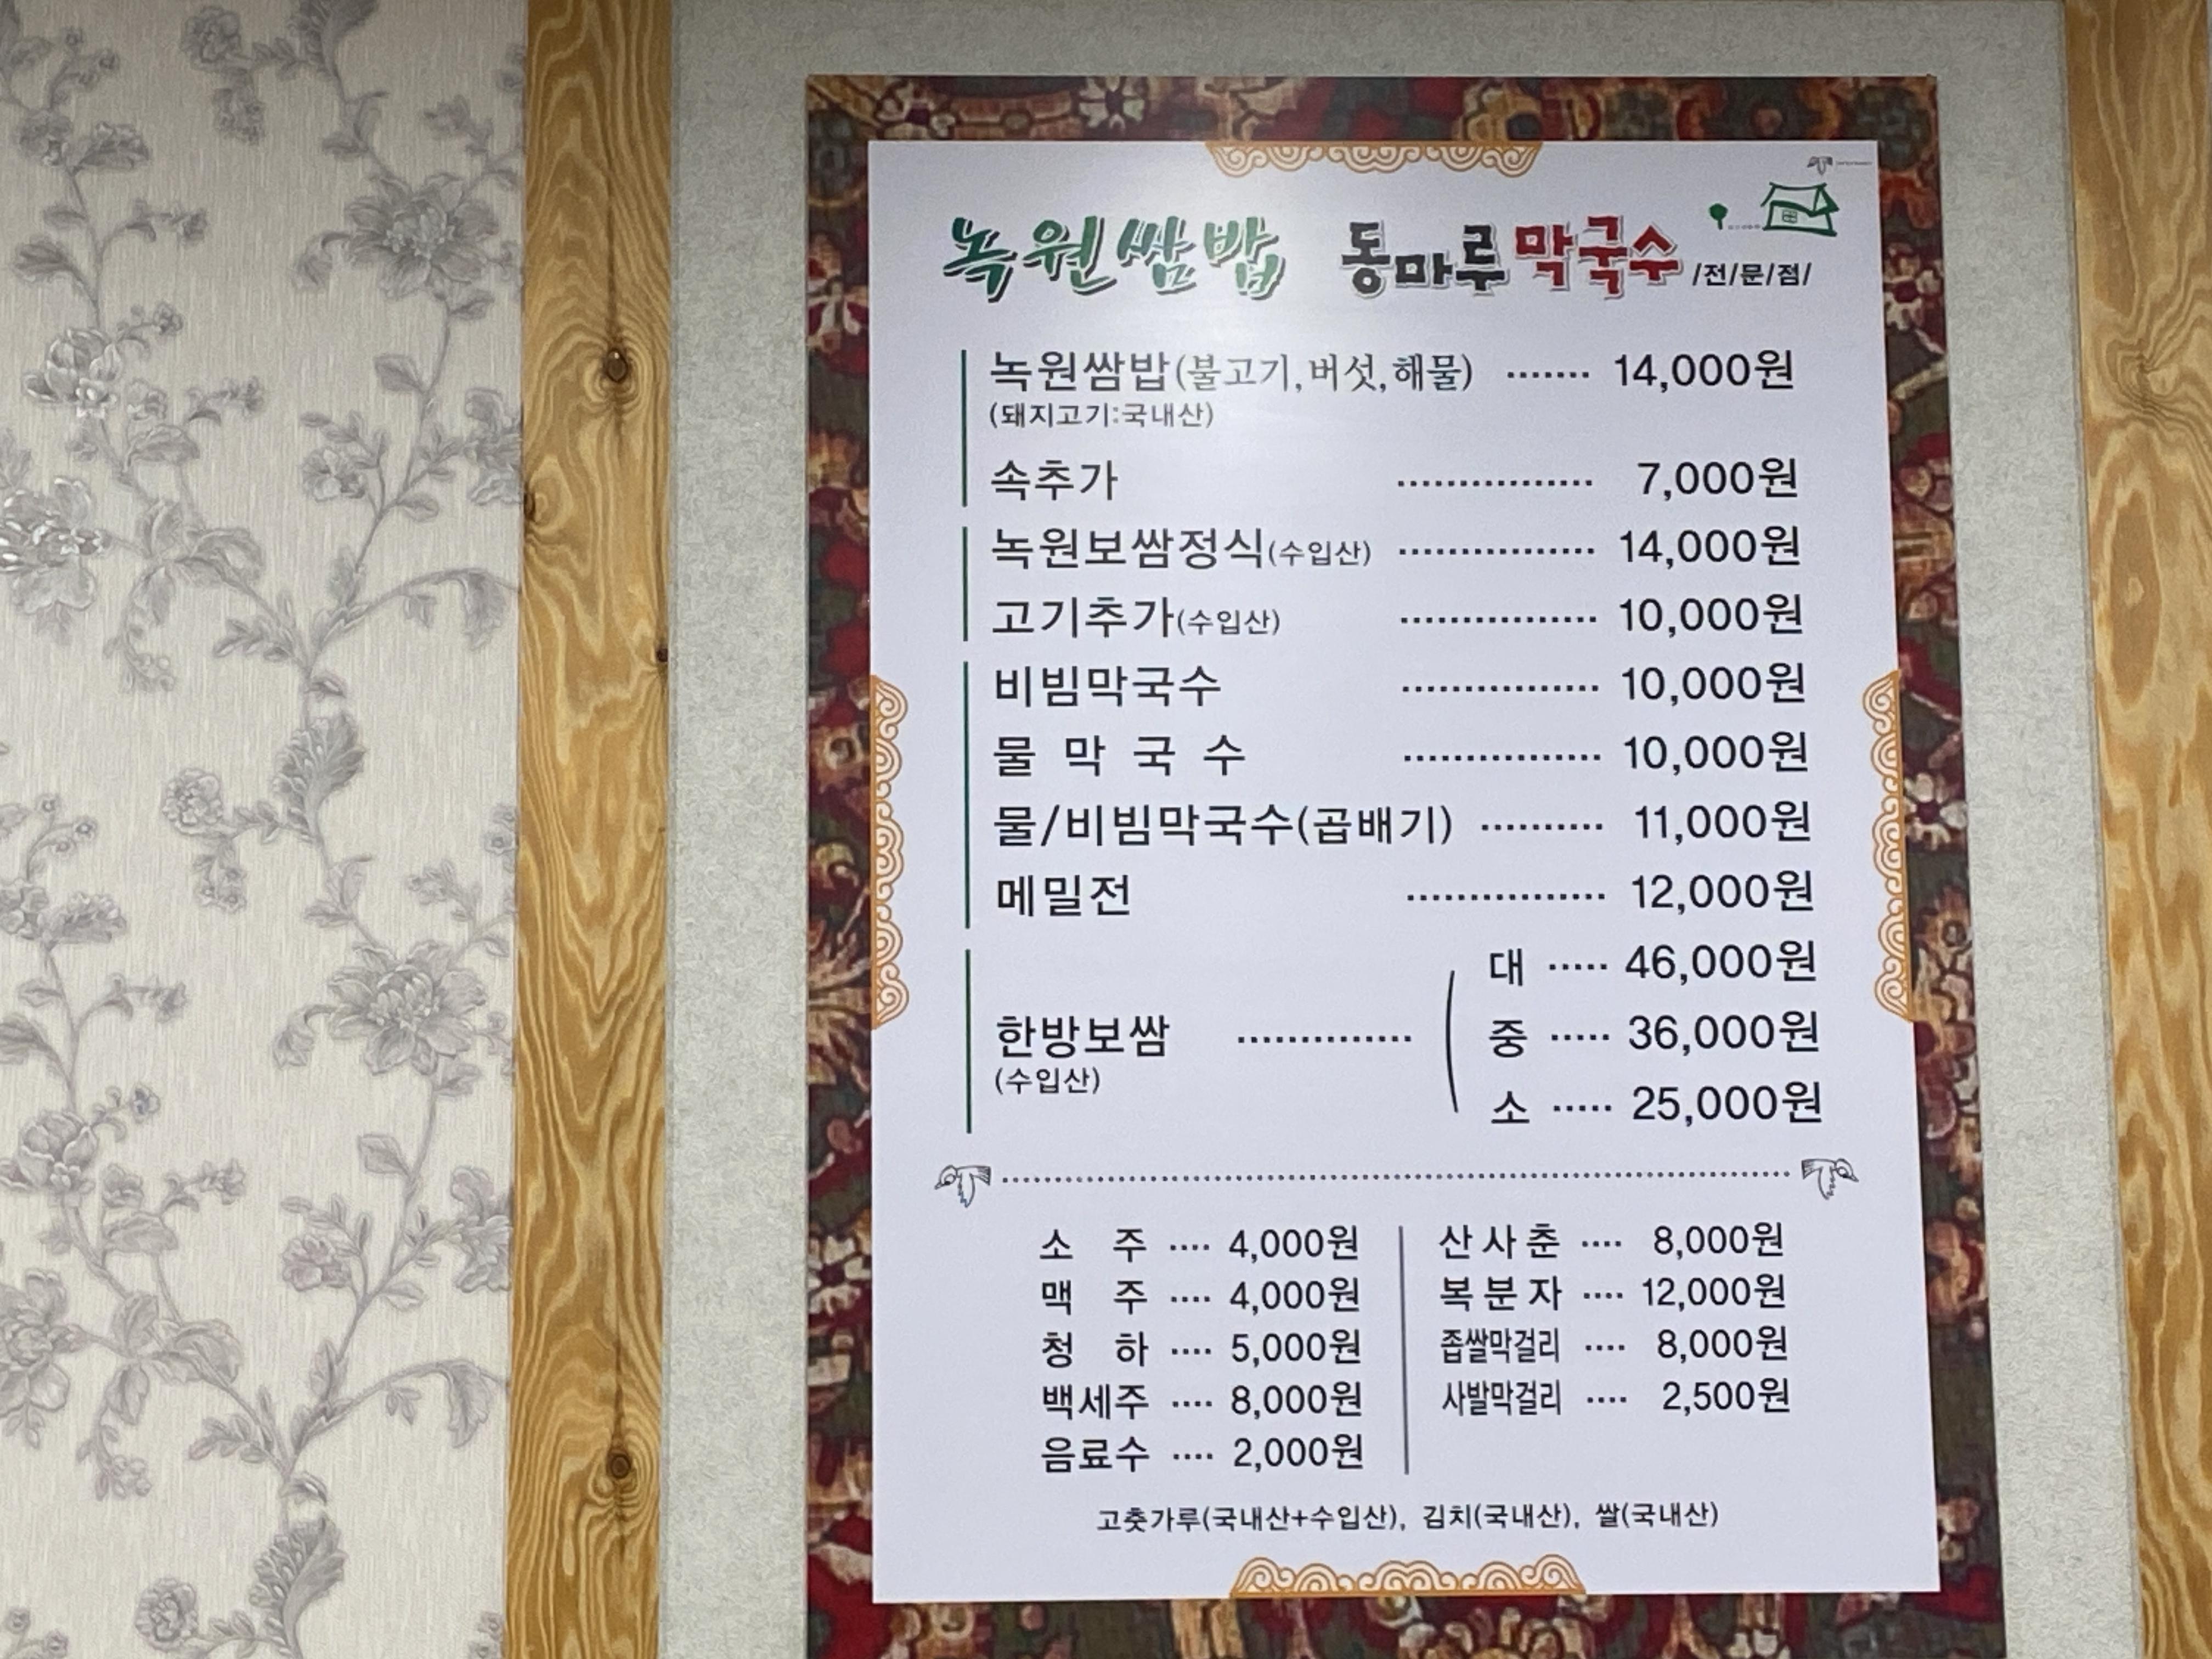 녹원쌈밥 동마루막국수 /전/문/점/
녹원쌈밥(불고기,버섯,해물) ······· 14,000원
(돼지고기:국내산)
속추가 ················ 7,000원
녹원보쌈정식(수입산) ················ 14,000원
고기추가(수입산) ················ 10,000원
비빔막국수 ················ 10,000원
물 막 국 수 ················ 10,000원
물/비빔막국수(곱배기) ·········· 11,000원
메밀전 ················ 12,000원
대 ····· 46,000원
한방보쌈 ·············· 중 ····· 36,000원
(수입산)
소 ····· 25,000원
소 주 ···· 4,000원
맥 주 ···· 4,000원
청 하 ···· 5,000원
백세주 ···· 8,000원
음료수 ···· 2,000원
산사춘 ···· 8,000원
복분자 ···· 12,000원
좁쌀막걸리 ···· 8,000원
사발막걸리 ···· 2,500원
고춧가루(국내산+수입산), 김치(국내산), 쌀(국내산)